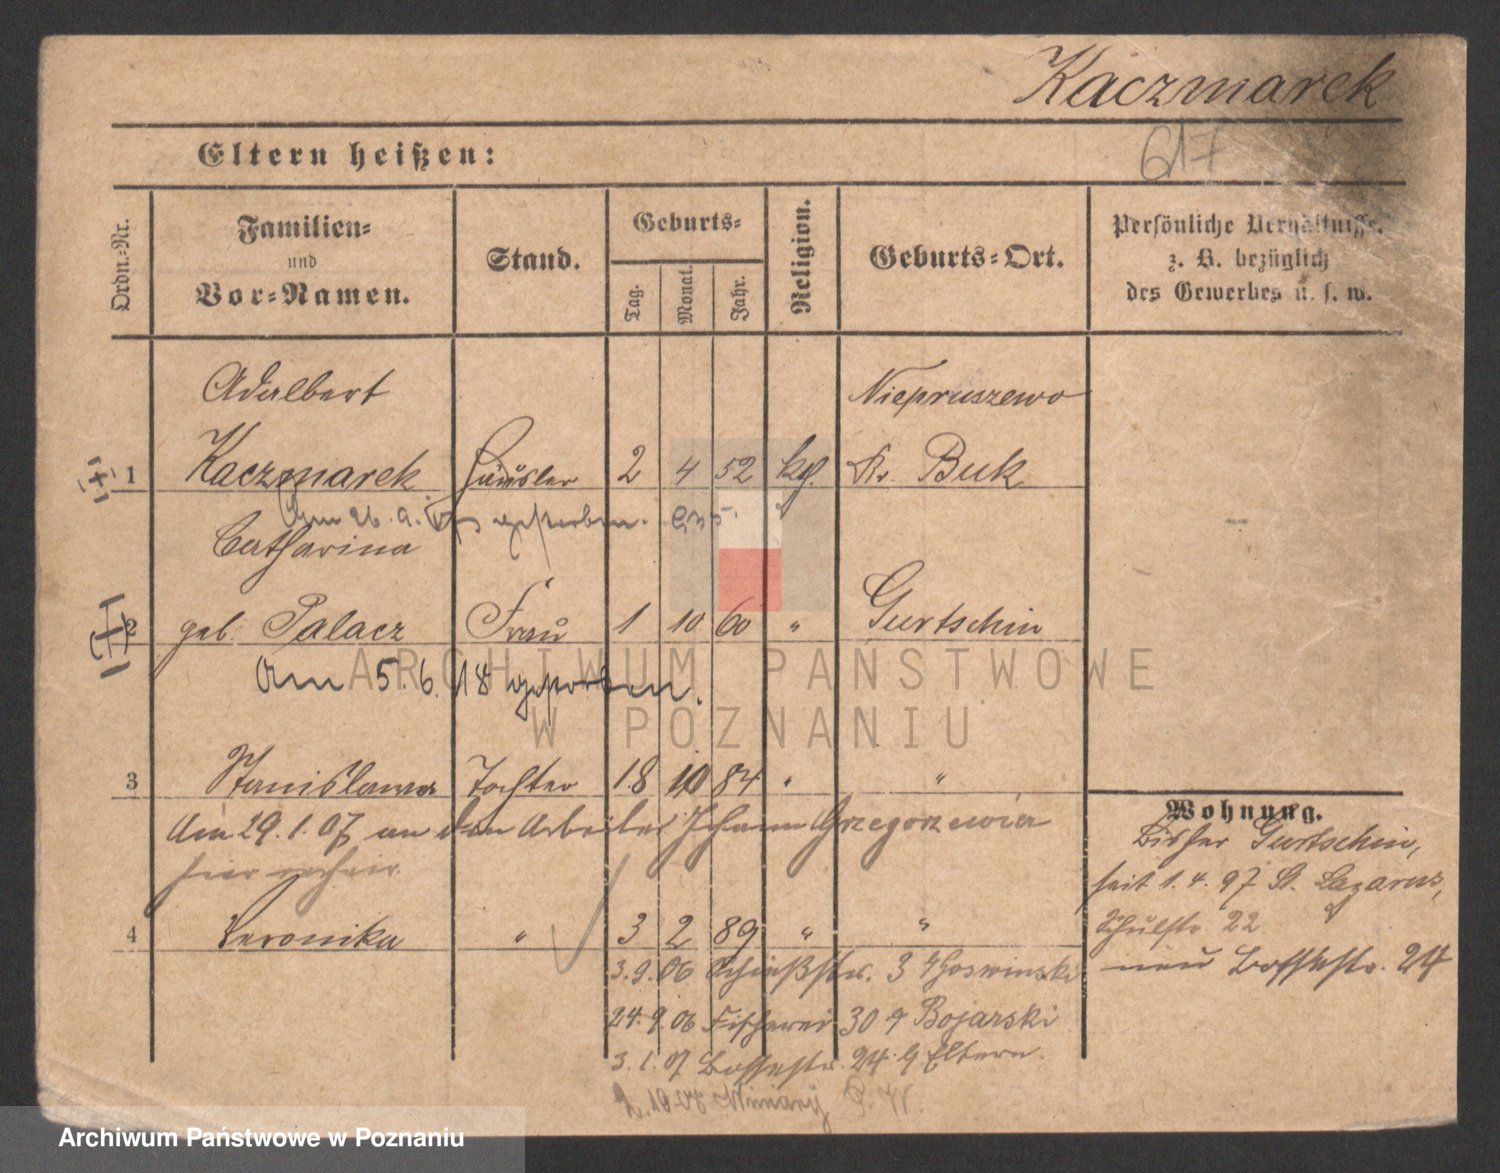 Kaczmarek
617
Eltern heißen:
Ordn.-Nr.
Familien-
und
Vor-Namen.
Stand.
Geburts-
Tag.
Monat.
Jahr.
Religion.
Geburts-Ort.
Persönliche Verhältnisse,
z. B. bezüglich
des Gewerbes u. s. w.
Adalbert Niepruszewo
1 Kaczmarek Häusler 2 4 52 kath. Kr. Buk
Am 26. gestorben.
Catharina
2 geb. Palacz Frau 1 10 60 " Gurtschin
Am 5.6.18 gestorben.
3 Stanislawa Tochter 18 10 84 " "
Am 29.1.07 an den Arbeiter Johann Grzegorzewicz
hier
4 Veronika " 3 2 89 " "
3.9.06 Schießstr. 3 Goswinski
24.9.06 Fischerei 30 Bojarski
3.1.07 Bosestr. 24 Eltern.
Winiary
Wohnung.
Bisher Gurtschin,
seit 1.4.97 St. Lazarus,
Schulstr. 22
neu Bosestr. 24
ARCHIWUM PAŃSTWOWE
W POZNANIU
Archiwum Państwowe w Poznaniu